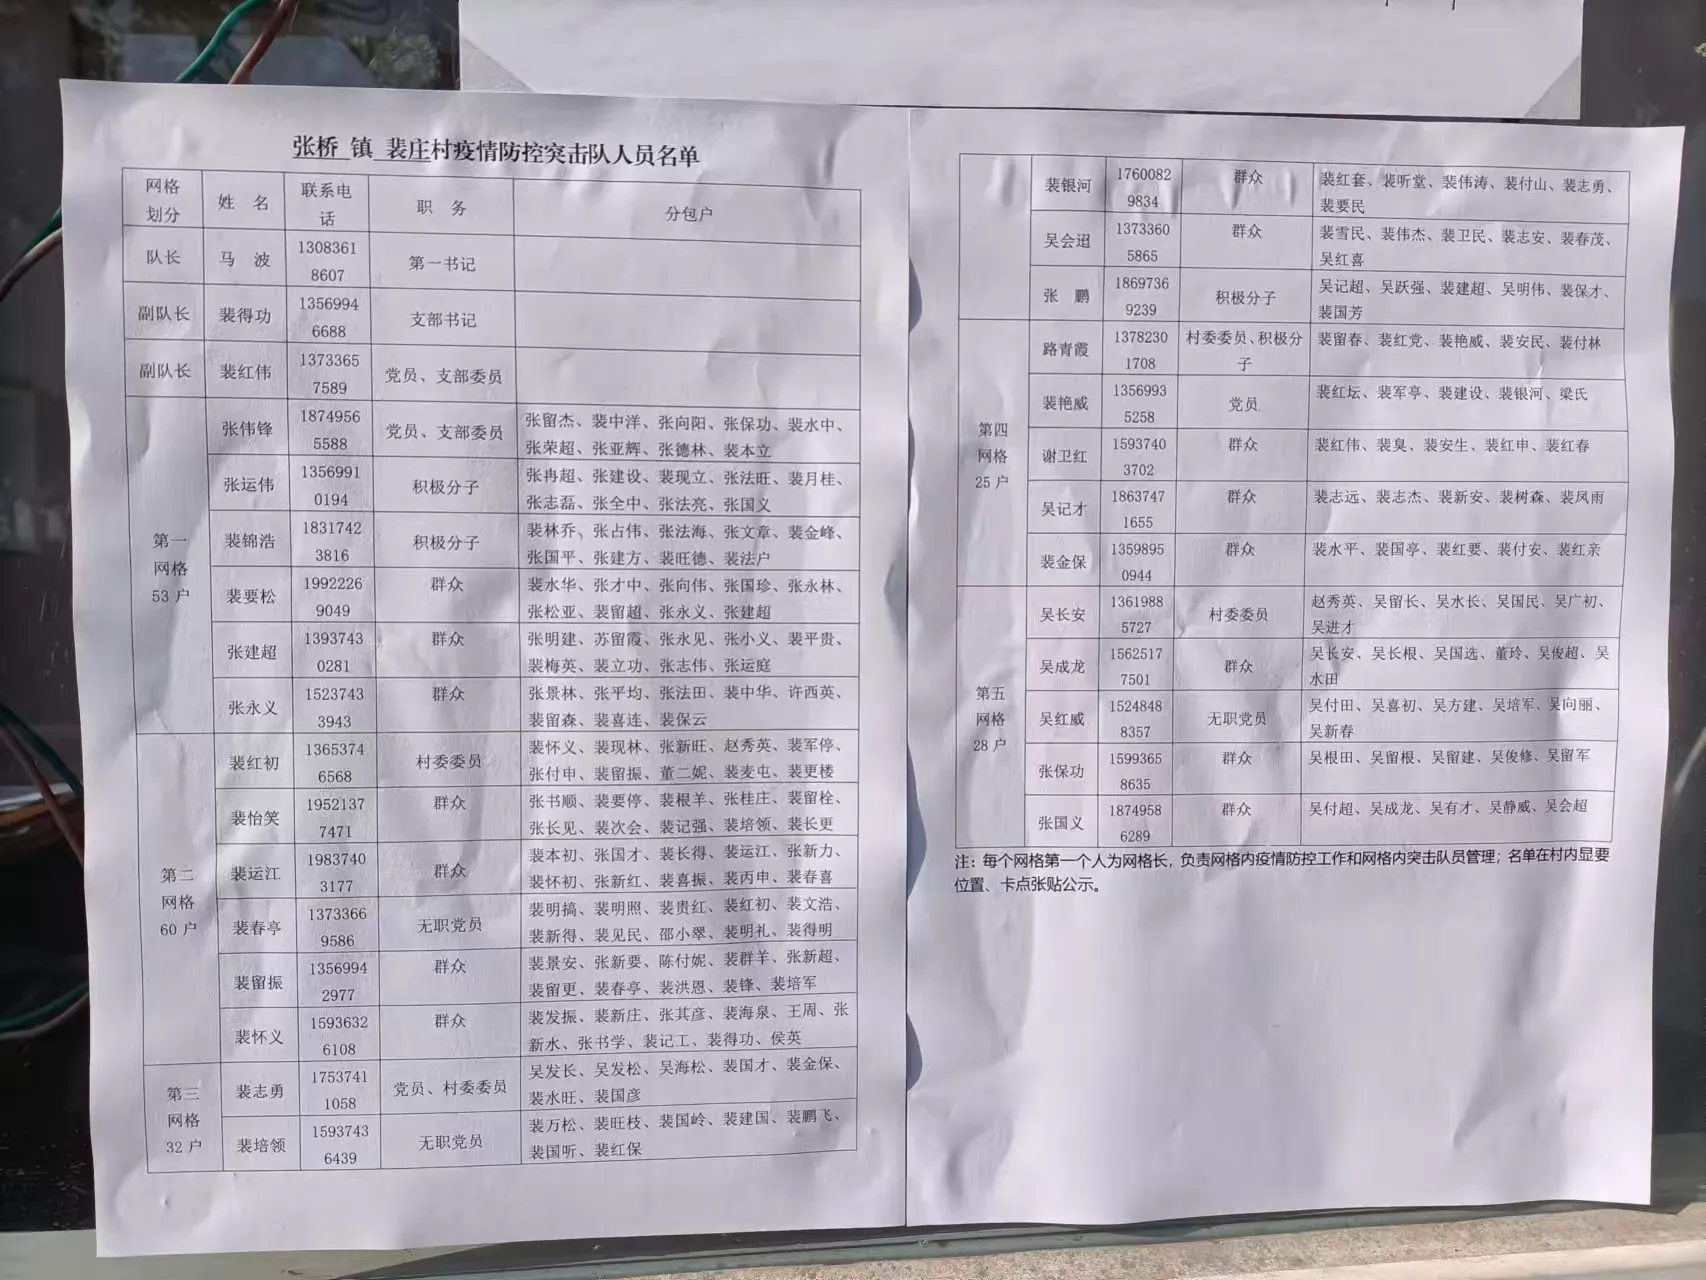 张桥 镇 裴庄村疫情防控突击队人员名单
网格划分 姓 名 联系电话 职 务 分包户
队长 马 波 13083618607 第一书记
副队长 裴得功 13569946688 支部书记
副队长 裴红伟 13733657589 党员、支部委员
第一网格53户
张伟锋 18749565588 党员、支部委员 张留杰、裴中洋、张向阳、张保功、裴水中、
张荣超、张亚辉、张德林、裴本立
张运伟 13569910194 积极分子 张冉超、张建设、裴现立、张法旺、裴月桂、
张志磊、张全中、张法亮、张国义
裴锦浩 18317423816 积极分子 裴林乔、张占伟、张法海、张文章、裴金峰、
张国平、张建方、裴旺德、裴法户
裴要松 19922269049 群众 裴水华、张才中、张向伟、张国珍、张永林、
张松亚、裴留超、张永义、张建超
张建超 13937430281 群众 张明建、苏留霞、张永见、张小义、裴平贵、
裴梅英、裴立功、张志伟、张运庭
张永义 15237433943 群众 张景林、张平均、张法田、裴中华、许西英、
裴留森、裴喜连、裴保云
第二网格60户
裴红初 13653746568 村委委员 裴怀义、裴现林、张新旺、赵秀英、裴军停、
张付申、裴留振、董二妮、裴麦屯、裴更楼
裴怡笑 19521377471 群众 张书顺、裴要停、裴根羊、张桂庄、裴留栓、
张长见、裴次会、裴记强、裴培领、裴长更
裴运江 19837403177 群众 裴本初、张国才、裴长得、裴运江、张新力、
裴怀初、张新红、裴喜振、裴丙申、裴春喜
裴春亭 13733669586 无职党员 裴明搞、裴明照、裴贵红、裴红初、裴文浩、
裴新得、裴见民、邵小翠、裴明礼、裴得明
裴留振 13569942977 群众 裴景安、张新要、陈付妮、裴群羊、张新超、
裴留更、裴春亭、裴洪恩、裴锋、裴培军
裴怀义 15936326108 群众 裴发振、裴新庄、张其彦、裴海泉、王周、张
新水、张书学、裴记工、裴得功、侯英
第三网格32户
裴志勇 17537411058 党员、村委委员 吴发长、吴发松、吴海松、裴国才、裴金保、
裴水旺、裴国彦
裴培领 15937436439 无职党员 裴万松、裴旺枝、裴国岭、裴建国、裴鹏飞、
裴国听、裴红保
裴银河 17600829834 群众 裴红套、裴听堂、裴伟涛、裴付山、裴志勇、
裴要民
吴会迢 13733605865 群众 裴雪民、裴伟杰、裴卫民、裴志安、裴春茂、
吴红喜
张 鹏 18697369239 积极分子 吴记超、吴跃强、裴建超、吴明伟、裴保才、
裴国芳
第四网格25户
路青霞 13782301708 村委委员、积极分子 裴留春、裴红党、裴艳威、裴安民、裴付林
裴艳威 13569935258 党员 裴红坛、裴军亭、裴建设、裴银河、梁氏
谢卫红 15937403702 群众 裴红伟、裴臭、裴安生、裴红申、裴红春
吴记才 18637471655 群众 裴志远、裴志杰、裴新安、裴树森、裴风雨
裴金保 13598950944 群众 裴水平、裴国亭、裴红要、裴付安、裴红亲
第五网格28户
吴长安 13619885727 村委委员 赵秀英、吴留长、吴水长、吴国民、吴广初、
吴进才
吴成龙 15625177501 群众 吴长安、吴长根、吴国选、董玲、吴俊超、吴
水田
吴红威 15248488357 无职党员 吴付田、吴喜初、吴方建、吴培军、吴向丽、
吴新春
张保功 15993658635 群众 吴根田、吴留根、吴留建、吴俊修、吴留军
张国义 18749586289 群众 吴付超、吴成龙、吴有才、吴静威、吴会超
注：每个网格第一个人为网格长，负责网格内疫情防控工作和网格内突击队员管理；名单在村内显要
位置、卡点张贴公示。